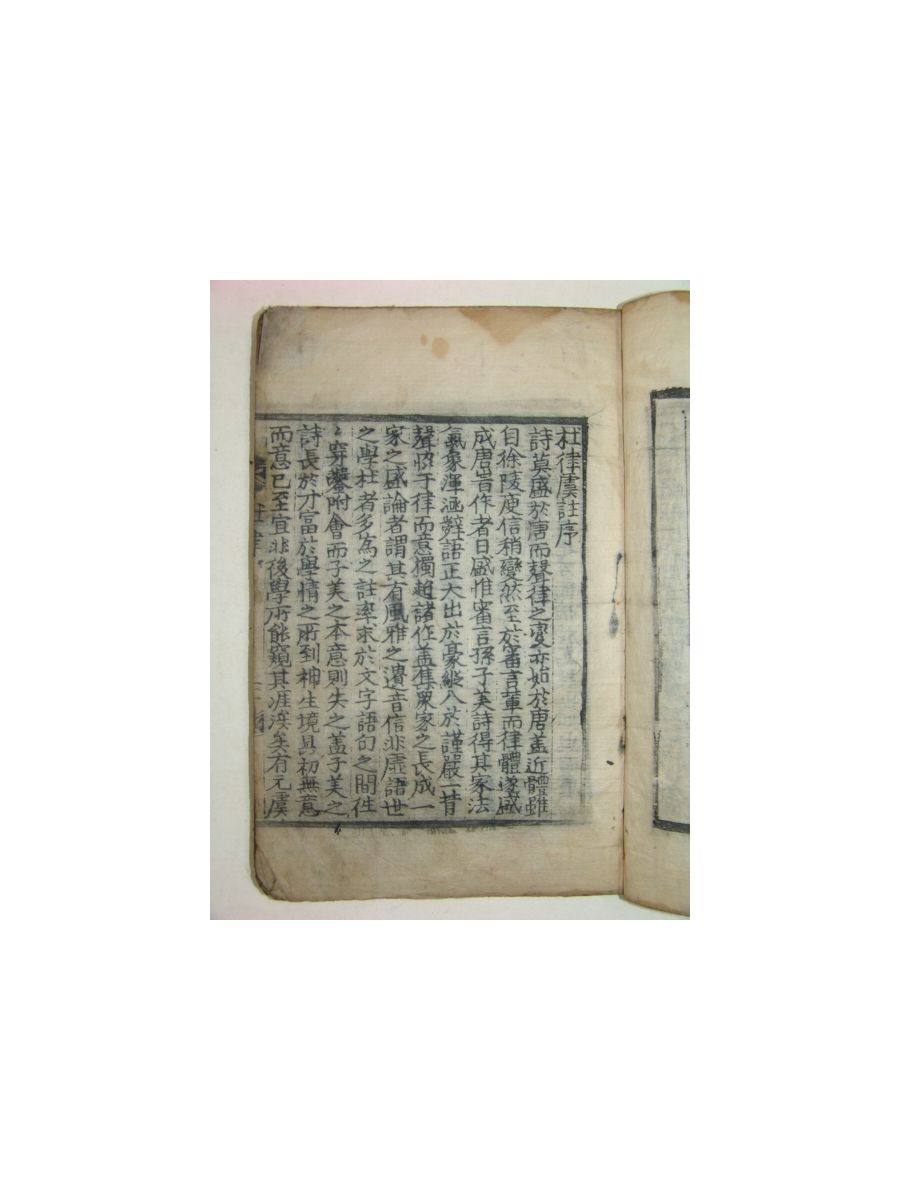 杜律虞註序
詩莫盛於唐而聲律之變亦始於唐盖近體雖
自徐陵庾信稍變然至於審言軰而律體遂盛
成唐昔作者日盛惟審言孫子美詩得其家法
氣象渾涵辭語正大出於豪縱入於謹嚴一昔
聲恊于律而意獨超諸作盖集衆家之長成一
家之盛論者謂其有風雅之遺音信非虛語世
之學杜者多為之註率求於文字語句之間徃
〻穿鑿附會而子美之本意則失之盖子美之
詩長於才富於學情之所到神生境具初無意
而意已至宜非後學所能窺其涯涘矣有元虞